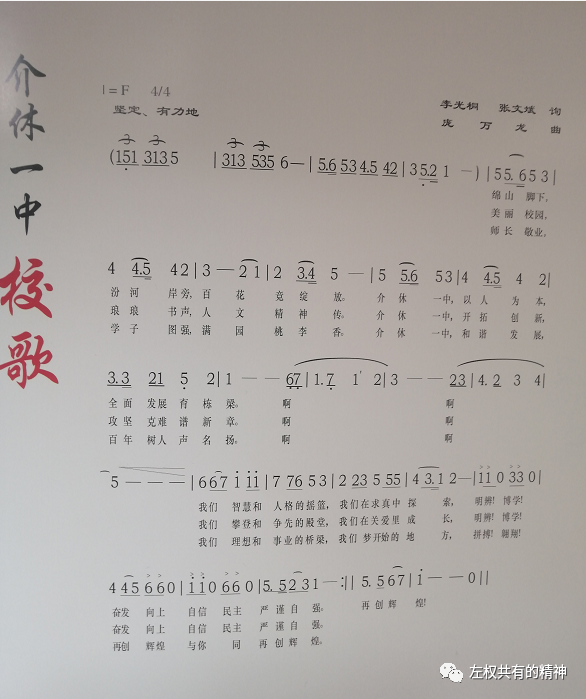 介休一中
校歌
1=F 4/4
坚定、有力地
李光桐 张文斌 词
庞万龙 曲
(151 3135 | 313 535 6— | 5.6 53 4.5 42 | 3 5.2 1 —) | 55. 653 |
绵山 脚下,
美丽 校园,
师长 敬业,
4 4.5 42 | 3 — 2 1 | 2 3.4 5 — | 5 5.6 53 | 4 4.5 4 2 |
汾河 岸旁, 百 花 竞 绽 放。 介 休 一中, 以 人 为 本,
琅琅 书声, 人 文 精 神 传。 介 休 一中, 开 拓 创 新,
学子 图强, 满 园 桃 李 香。 介 休 一中, 和 谐 发 展,
3.3 21 5 2 | 1 — — 67 | 1.7 1 2 | 3 — — 23 | 4.2 3 4 |
全面 发展 育 栋 梁。 啊 啊
攻坚 克难 谱 新 章。 啊 啊
百年 树人 声 名 扬。 啊 啊
5 — — — | 667 1 11 | 7 76 5 3 | 2 23 5 55 | 4 3.1 2— | 110 330 |
我们 智慧和 人格的摇篮, 我们在求真中 探 索, 明辨! 博学!
我们 攀登和 争先的殿堂, 我们在关爱里 成 长, 明辨! 博学!
我们 理想和 事业的桥梁, 我们 梦开始的 地 方, 拼搏! 翱翔!
4 45 660 | 110 660 | 5. 5231 — :|| 5. 567 | 1— —0 ||
奋发 向上 自信 民主 严 谨 自 强。 再 创 辉 煌!
奋发 向上 自信 民主 严 谨 自 强。
再创 辉煌 与你 同 再 创 辉 煌。
左权共有的精神